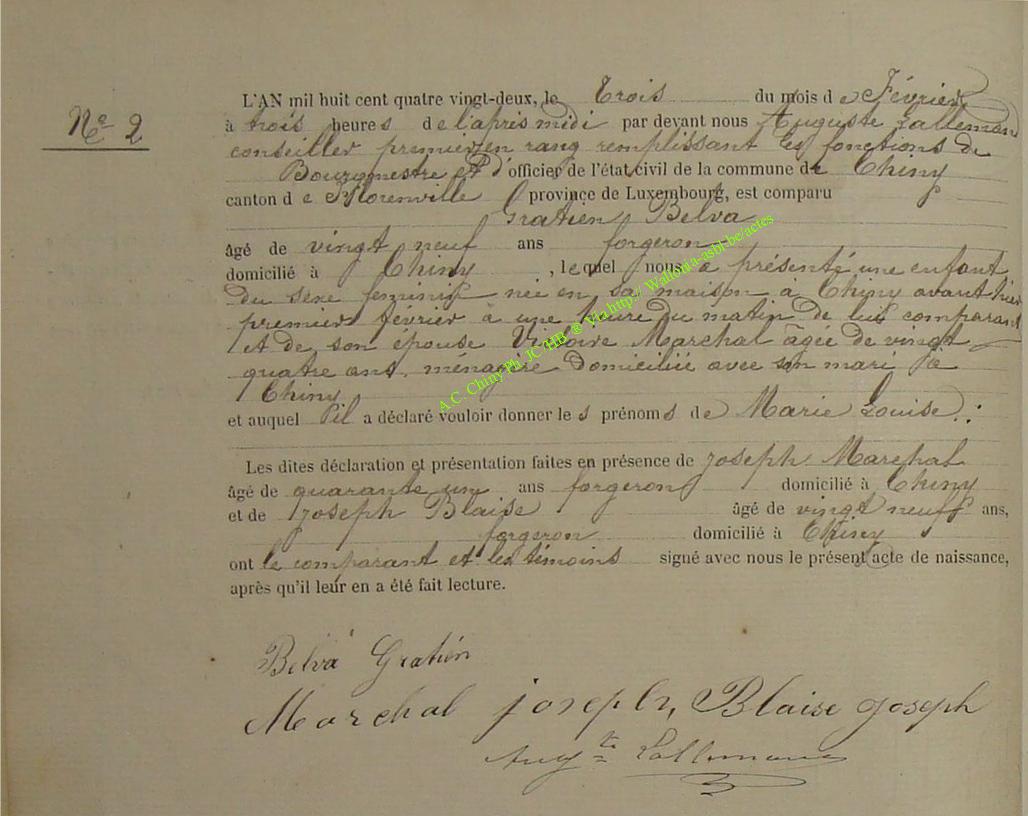 N° 2
L'AN mil huit cent quatre vingt-deux, le trois du mois de Février
à trois heures de l'après midi par devant nous Auguste Lallemand
conseiller premier en rang remplissant les fonctions de
Bourgmestre et d'officier de l'état civil de la commune de Chiny
canton de Florenville province de Luxembourg, est comparu
Gratien Belva
âgé de vingt neuf ans forgeron
domicilié à Chiny, lequel nous a présenté une enfant
du sexe feminin née en sa maison à Chiny avant hier
premier février à une heure du matin de lui comparant
et de son épouse Victoire Marchal agée de vingt
quatre ans, ménagère domiciliée avec son mari à
Chiny
et auquel il a déclaré vouloir donner les prénoms de Marie Louise
Les dites déclaration et présentation faites en présence de Joseph Marchal
âgé de quarante un ans forgeron domicilié à Chiny
et de Joseph Blaise âgé de vingt neuf ans,
forgeron domicilié à Chiny
ont le comparant et les témoins signé avec nous le présent acte de naissance,
après qu'il leur en a été fait lecture.
Belva Gratien
Marchal joseph, Blaise joseph
Aug^te Lallemand
A.C. Chiny Ph. JC HB ® Via http://Wallonia-asbl-be/actes